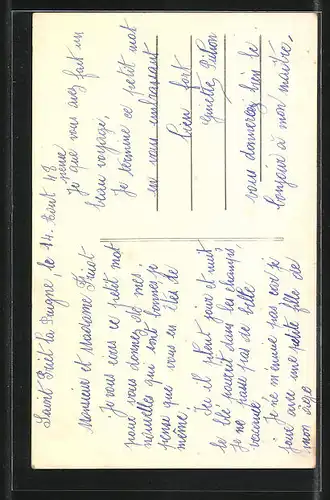 Saint Priet la Prugne, le 14 Août 48
Monsieur et Madame Friot
Je vous écris ce petit mot
pour vous donnez de mes
nouvelles qui sont bonnes je
pense que vous en êtes de
même.
Ici il pleut jour et nuit
le blé pourrit dans les champs,
Je ne passe pas de belle
vacance
je ne m'ennuie pas car je
joue avec une petite fille de
mon âge
Je pense
que vous avez fait un
beau voyage,
Je termine ce petit mot
en vous embrassant
bien fort
Ginette
vous donnerez bien le
bonjour à mon maître,